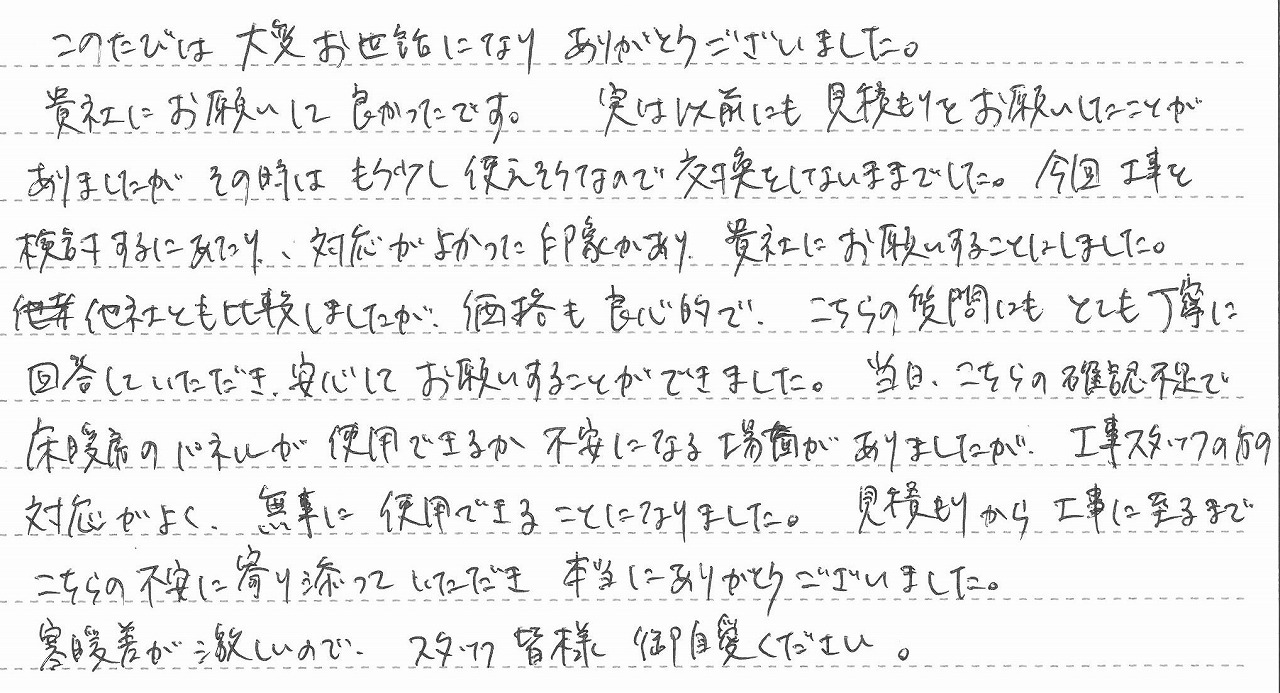 このたびは 大変お世話になり ありがとうございました。
貴社にお願いして 良かったです。 実は以前にも 見積もりをお願いしたことが
ありましたが その時は もう少し 使えそうなので 交換をしないままでした。 今回 工事を
検討するにあたり、対応がよかった印象があり、貴社にお願いすることにしました。
他社とも比較しましたが、価格も良心的で、 こちらの質問にも とても丁寧に
回答していただき、安心して お願いすることができました。 当日、こちらの確認不足で
床暖房のパネルが 使用できるか 不安になる場面がありましたが、 工事スタッフの方の
対応がよく、無事に 使用できることになりました。 見積もりから 工事に至るまで
こちらの不安に寄り添って いただき 本当にありがとうございました。
寒暖差が激しいので、 スタッフ 皆様 御自愛ください。